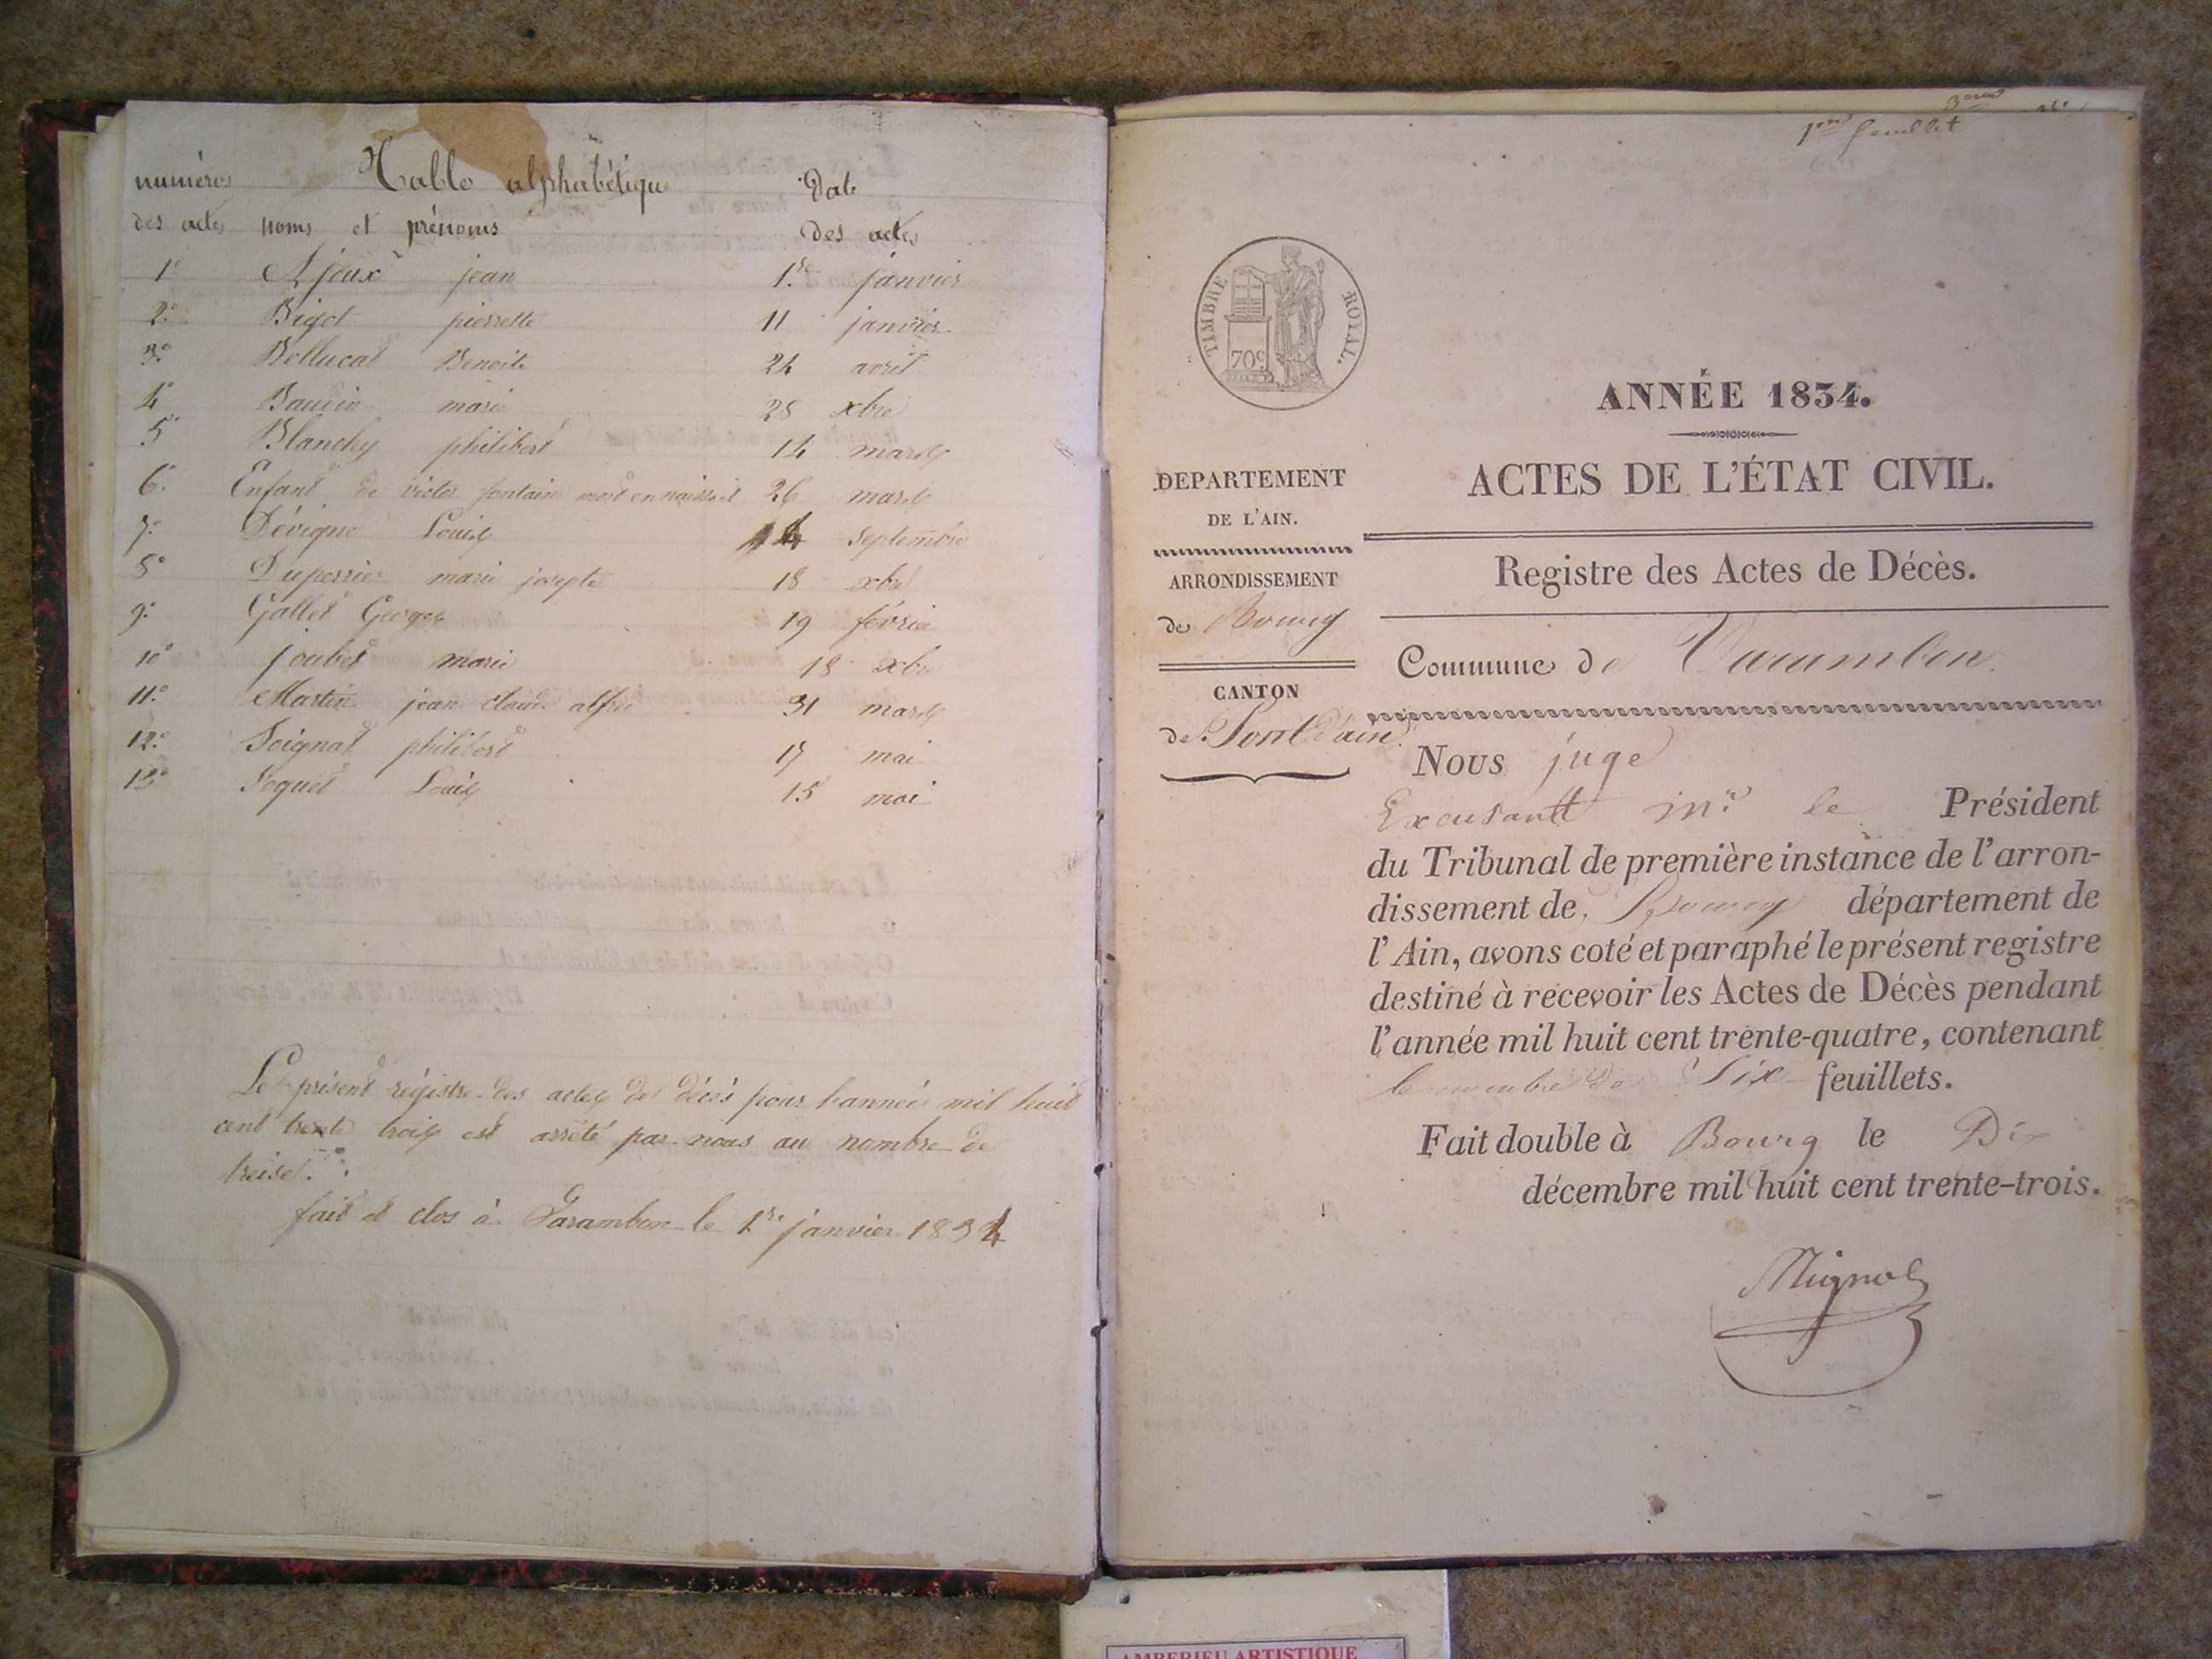 numéros Table alphabétique Date
des actes noms et prénoms des actes
1° Ajoux jean 1.re janvier
2° Bigot pierrette 11 janvier
3° Bellucat Benoite 24 avril
4° Baudin marie 28 xbre
5° Blanchy philibert 14 mars
6° Enfant de victor fontaine mort en naissant 26 mars
7° Dévigne Louis septembre
8° Duperrier marie josepte 18 xbre
9° Gallet Georges 19 février
10° joubet marie 18 xbre
11° Martin jean claude 31 mars
12° Soignat philibert 17 mai
13° Soquet Louis 15 mai
Le présent régistre des actes de décès pour l'année mil huit
cent trente trois est arrêté par nous au nombre de
treise.
fait et clos à Varambon le 1re janvier 1834
1er feuillet
TIMBRE ROYAL.
70c.
ANNÉE 1834.
ACTES DE L'ÉTAT CIVIL.
DEPARTEMENT
DE L'AIN.
Registre des Actes de Décès.
ARRONDISSEMENT
de Bourg
Commune de Varambon
CANTON
de Pont d'ain
Nous juge
Excusant Mr. le Président
du Tribunal de première instance de l'arron-
dissement de Bourg département de
l'Ain, avons coté et paraphé le présent registre
destiné à recevoir les Actes de Décès pendant
l'année mil huit cent trente-quatre, contenant
le nombre de Six feuillets.
Fait double à Bourg le Dix
décembre mil huit cent trente-trois.
Mignot
AMBERIEU ARTISTIQUE